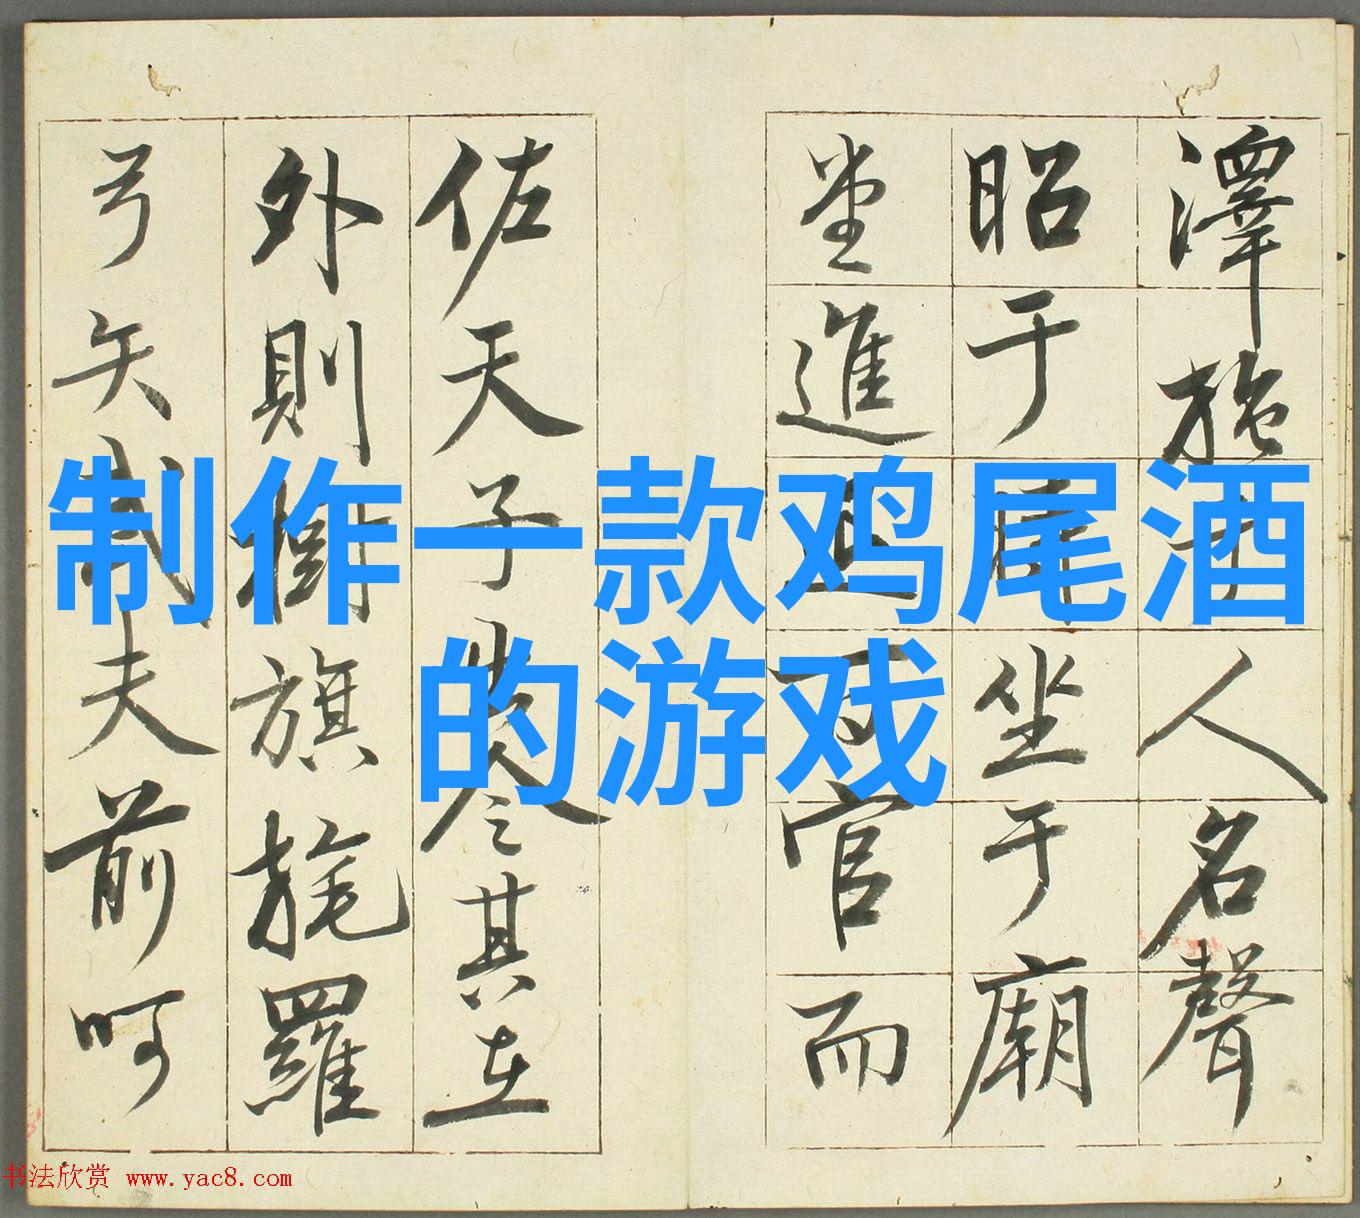 制作一款鸡尾酒
的游戏
澤施于人名聲
昭于時坐于廟
堂進退百官而
佐天子出令其在
外則樹旗旄羅
弓矢武夫前呵
书法欣赏 www.yac8.com